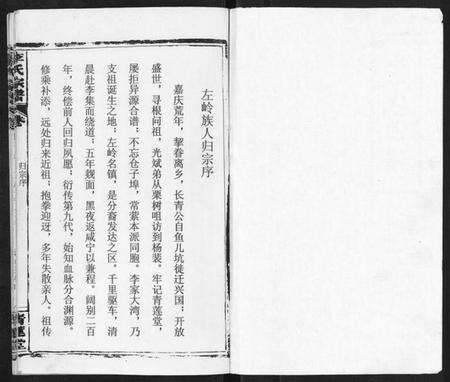 左岭族人归宗序
嘉庆荒年，挈眷离乡，长青公自鱼儿坑徙迁兴国；开放
盛世，寻根问祖，光斌弟从栗树咀访到杨装。牢记青莲堂，
屡拒异源合谱；不忘仓子埠，常萦本派同胞。李家大湾，乃
支祖诞生之地；左岭名镇，是分裔发达之区。千里驱车，清
晨赴李集而绕道；五年觌面，黑夜返咸宁以兼程。阔别二百
年，终偿前人回归夙愿；衍传第九代，始知血脉分合渊源。
修乘补添，远处归来近祖；抱拳迎迓，多年失散亲人。祖传
李氏宗谱
卷
归宗序
青莲堂